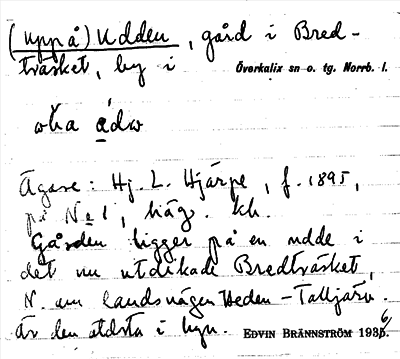 (uppå) Udden, gård i Bred-
träsket, by i Överkalix sn o. tg. Norrb. l.
Ägare: Hj. L. Hjärpe, f. 1895,
på No 1, häg. kh.
Gården ligger på en udde i
det nu utdikade Bredträsket,
N. om landsvägen Heden–Talljärv.
Är den äldsta i byn. EDVIN BRÄNNSTRÖM 1936.